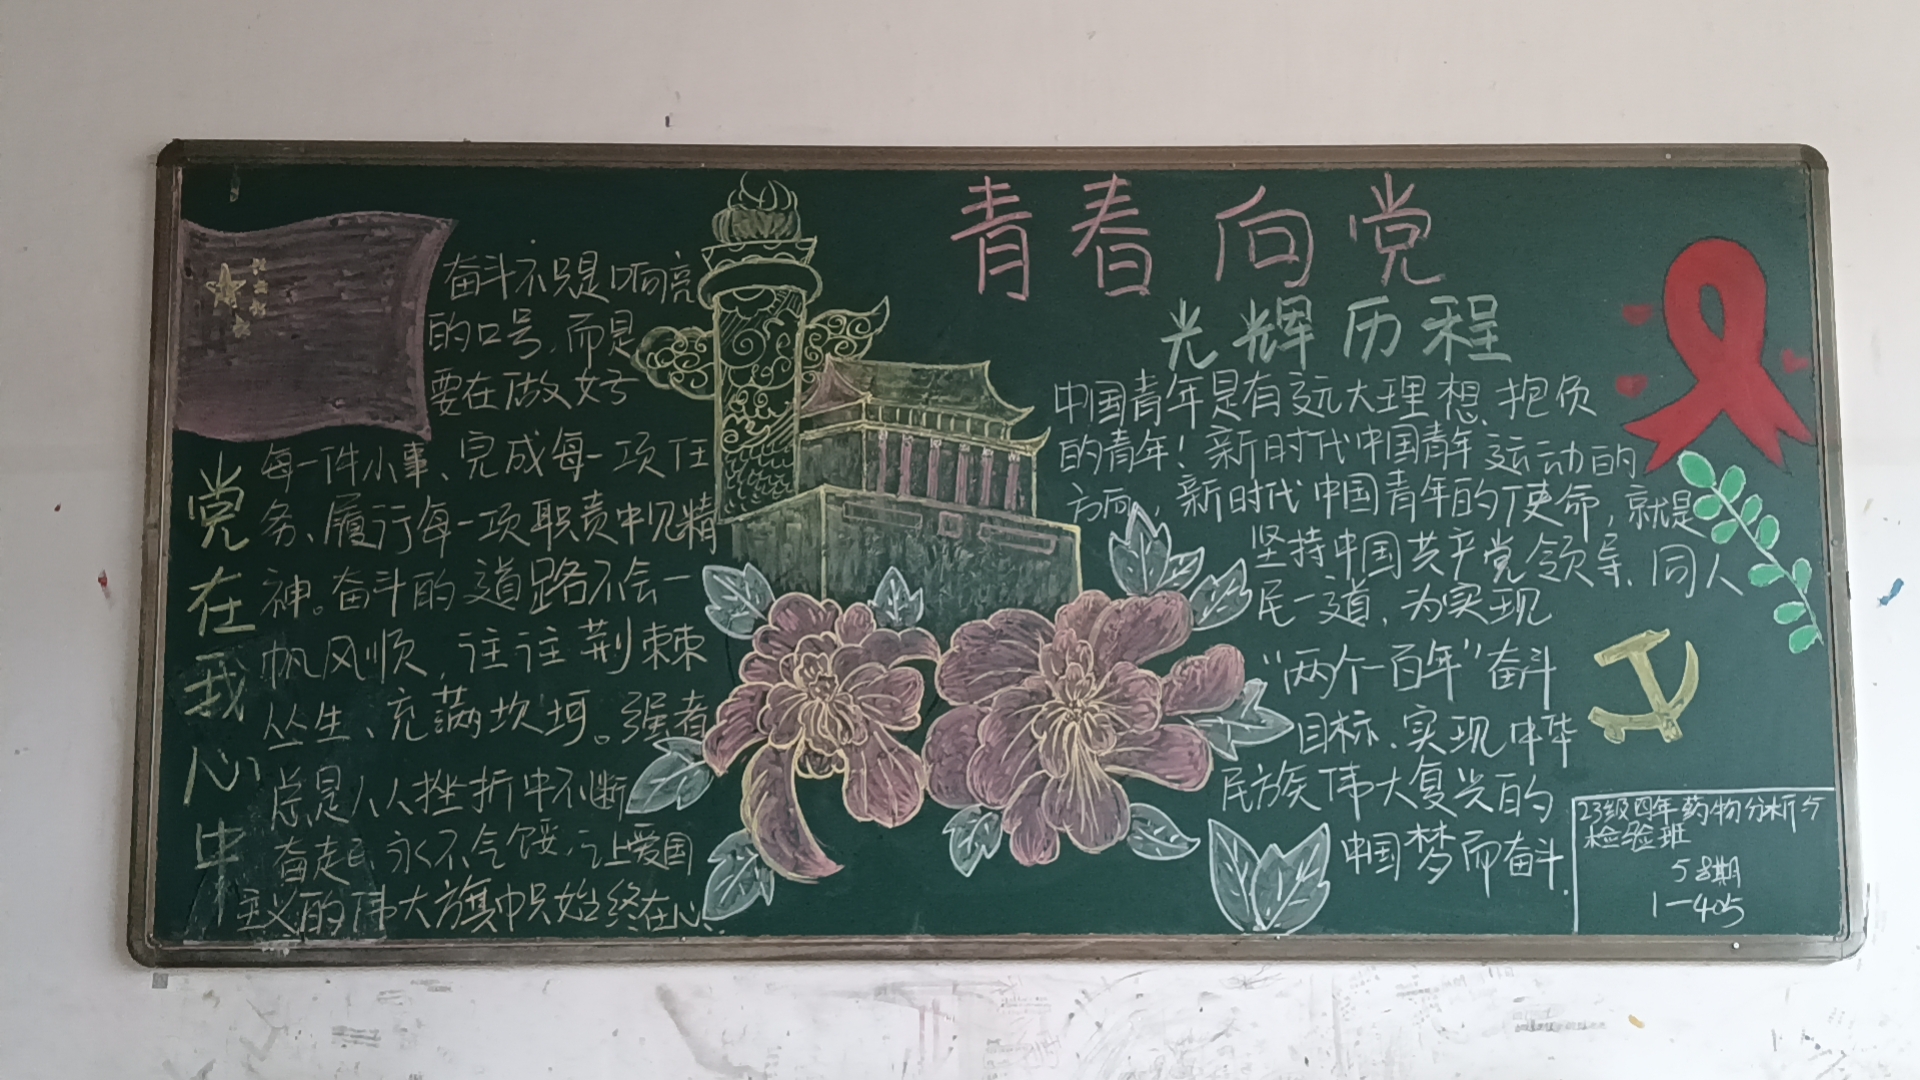 青春向党
光辉历程
党在我心中
奋斗不只是响亮
的口号,而是
要在做好
每一件小事、完成每一项任
务、履行每一项职责中见精
神。奋斗的道路不会一
帆风顺,往往荆棘
丛生、充满坎坷。强者
总是从挫折中不断
奋起、永不气馁,让爱国
主义的伟大旗帜始终在心
中国青年是有远大理想、抱负
的青年!新时代中国青年运动的
方向,新时代中国青年的使命,就是
坚持中国共产党领导、同人
民一道,为实现
“两个一百年”奋斗
目标、实现中华
民族伟大复兴的
中国梦而奋斗.
23级四年药物分析与
检验班
58期
1-405